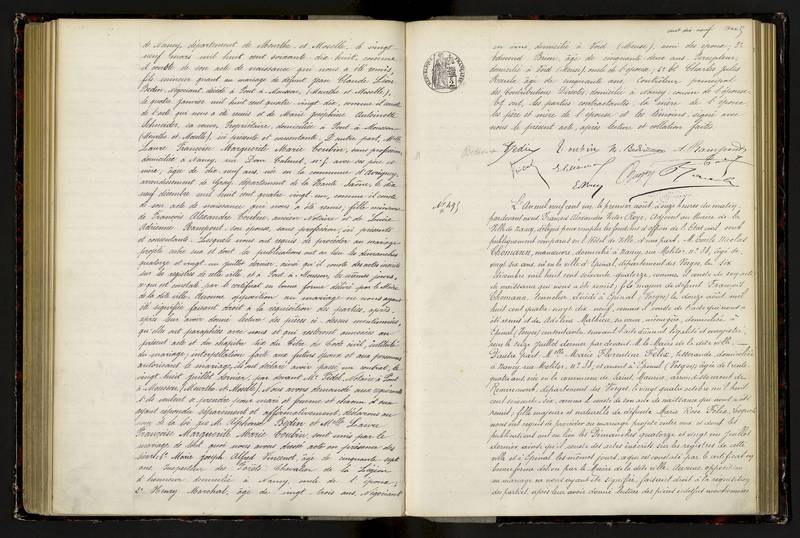 de Nancy, département de Meurthe et Moselle, le vingt
neuf mars mil huit cent soixante dix huit, comme
il conste de son acte de naissance qui nous a été remis,
fils mineur de défunt Jean Claude Léon
Bedin, Négociant, décédé à Pont à Mousson, (Meurthe et Moselle),
le quatre janvier mil huit cent quatre vingt dix, comme il conste
de l'acte qui nous a été remis et de Marie Joséphine Antoinette
Schneider, sa veuve, Propriétaire, domiciliée à Pont à Mousson
(Meurthe et Moselle), ici présente et consentante. D'autre part, Melle
Laure Françoise Marguerite Marie Coubin, sans profession,
domiciliée à Nancy, rue Dom Calmet, n° 5, avec ses père et
mère, âgée de dix neuf ans, née en la commune d'
arrondissement de Gray, département de la Haute Saône, le dix
neuf décembre mil huit cent quatre vingt un, comme il conste
de son acte de naissance qui nous a été remis, fille mineure
de François Alexandre Coubin, ancien Notaire et de Louise
Adrienne Rampont, son épouse, sans profession, ici présents
et consentants. Lesquels nous ont requis de procéder au mariage
projeté entre eux et dont les publications ont eu lieu les dimanches
quatorze et vingt un juillet dernier, ainsi qu'il conste des actes inscrits
sur les registres de cette ville et à Pont à Mousson, les mêmes jours,
ce qui est constaté par le certificat en bonne forme délivré par le Maire
de la dite ville. Aucune opposition au mariage ne nous ayant
été signifiée faisant droit à la réquisition des parties, après
après leur avoir donné lecture des pièces ci dessus mentionnées,
qu'elles ont paraphées avec nous et qui resteront annexées au
présent acte et du chapitre six du titre du Code civil, intitulé
du mariage, interpellation faite aux futurs époux et aux personnes
autorisant le mariage, ils ont déclaré avoir passé un contrat, le
vingt huit juillet dernier, par devant Me Fidel, Notaire à Pont
à Mousson, (Meurthe et Moselle). Nous avons demandé aux
s'ils veulent se prendre pour mari et femme et chacun d'eux
ayant répondu séparément et affirmativement, déclarons au
nom de la loi que M. Alphonse Bedin et Melle Laure
Françoise Marguerite Marie Coubin sont unis par le
mariage de tout quoi nous avons dressé acte en présence des
sieurs, 1° Marie Joseph Alfred Vincent, âgé de cinquante sept
ans, Inspecteur des Forêts, Chevalier de la Légion
d'honneur, domicilié à Nancy, oncle de l'épouse;
2° Henry Marchal, âgé de vingt trois ans, Négociant
cent dix neuf
en vins, domicilié à Void (Meuse), ami des époux; 3°
Edmond Brun, âgé de cinquante deux ans,
domicilié à Void (Meuse), oncle de l'épouse; 4° et Charles Jules
âgé de cinquante ans, Contrôleur principal
des Contributions Directes, domicilié à Nancy, cousin de l'épouse.
Et ont, les parties contractantes, la mère de l'époux,
les père et mère de l'épouse et les témoins, signé avec
nous le présent acte, après lecture et collation faites
N° 495
L'an mil neuf cent un, le premier août, onze heures du matin,
pardevant nous François Alexandre Adjoint au Maire de la
Ville de Nancy, délégué pour remplir les fonctions d'officier de l'Etat civil, sont
publiquement comparus en l'Hôtel de Ville, d'une part, M. Emile Nicolas
Chemann, manœuvre, domicilié à Nancy, rue Molitor, n° 31, âgé de
vingt six ans, né en la ville d'Epinal, département des Vosges, le six
décembre mil huit cent soixante quatorze, comme il conste de son acte
de naissance qui nous a été remis; fils majeur de défunt François
Chemann, décédé à Epinal, (Vosges), le douze août mil
huit cent quatre vingt dix neuf, comme il conste de l'acte qui nous a
été remis et de sa veuve, ménagère, domiciliée à
Epinal (Vosges) consentante suivant l'acte dûment légalisé et enregistré,
reçu le seize juillet dernier par devant M. le Maire de la dite ville.
D'autre part, Melle Marie Florentine Felix, domiciliée
à Nancy, rue Molitor, n° 31, et avant à Epinal (Vosges), âgée de trente
quatre ans, née en la commune de arrondissement de
Remiremont, département des Vosges, le vingt quatre octobre mil huit
cent soixante six, comme il conste de son acte de naissance qui nous a été
remis; fille majeure et naturelle de défunte Marie Rose Felix. Lesquels
nous ont requis de procéder au mariage projeté entre eux et dont les
publications ont eu lieu les Dimanches quatorze et vingt un juillet
dernier ainsi qu'il conste des actes inscrits sur les registres de cette
ville et à Epinal les mêmes jours, ce qui est constaté par le certificat en
bonne forme délivré par le Maire de la dite ville. Aucune opposition
au mariage ne nous ayant été signifiée, faisant droit à la réquisition
des parties, après leur avoir donné lecture des pièces ci dessus mentionnées